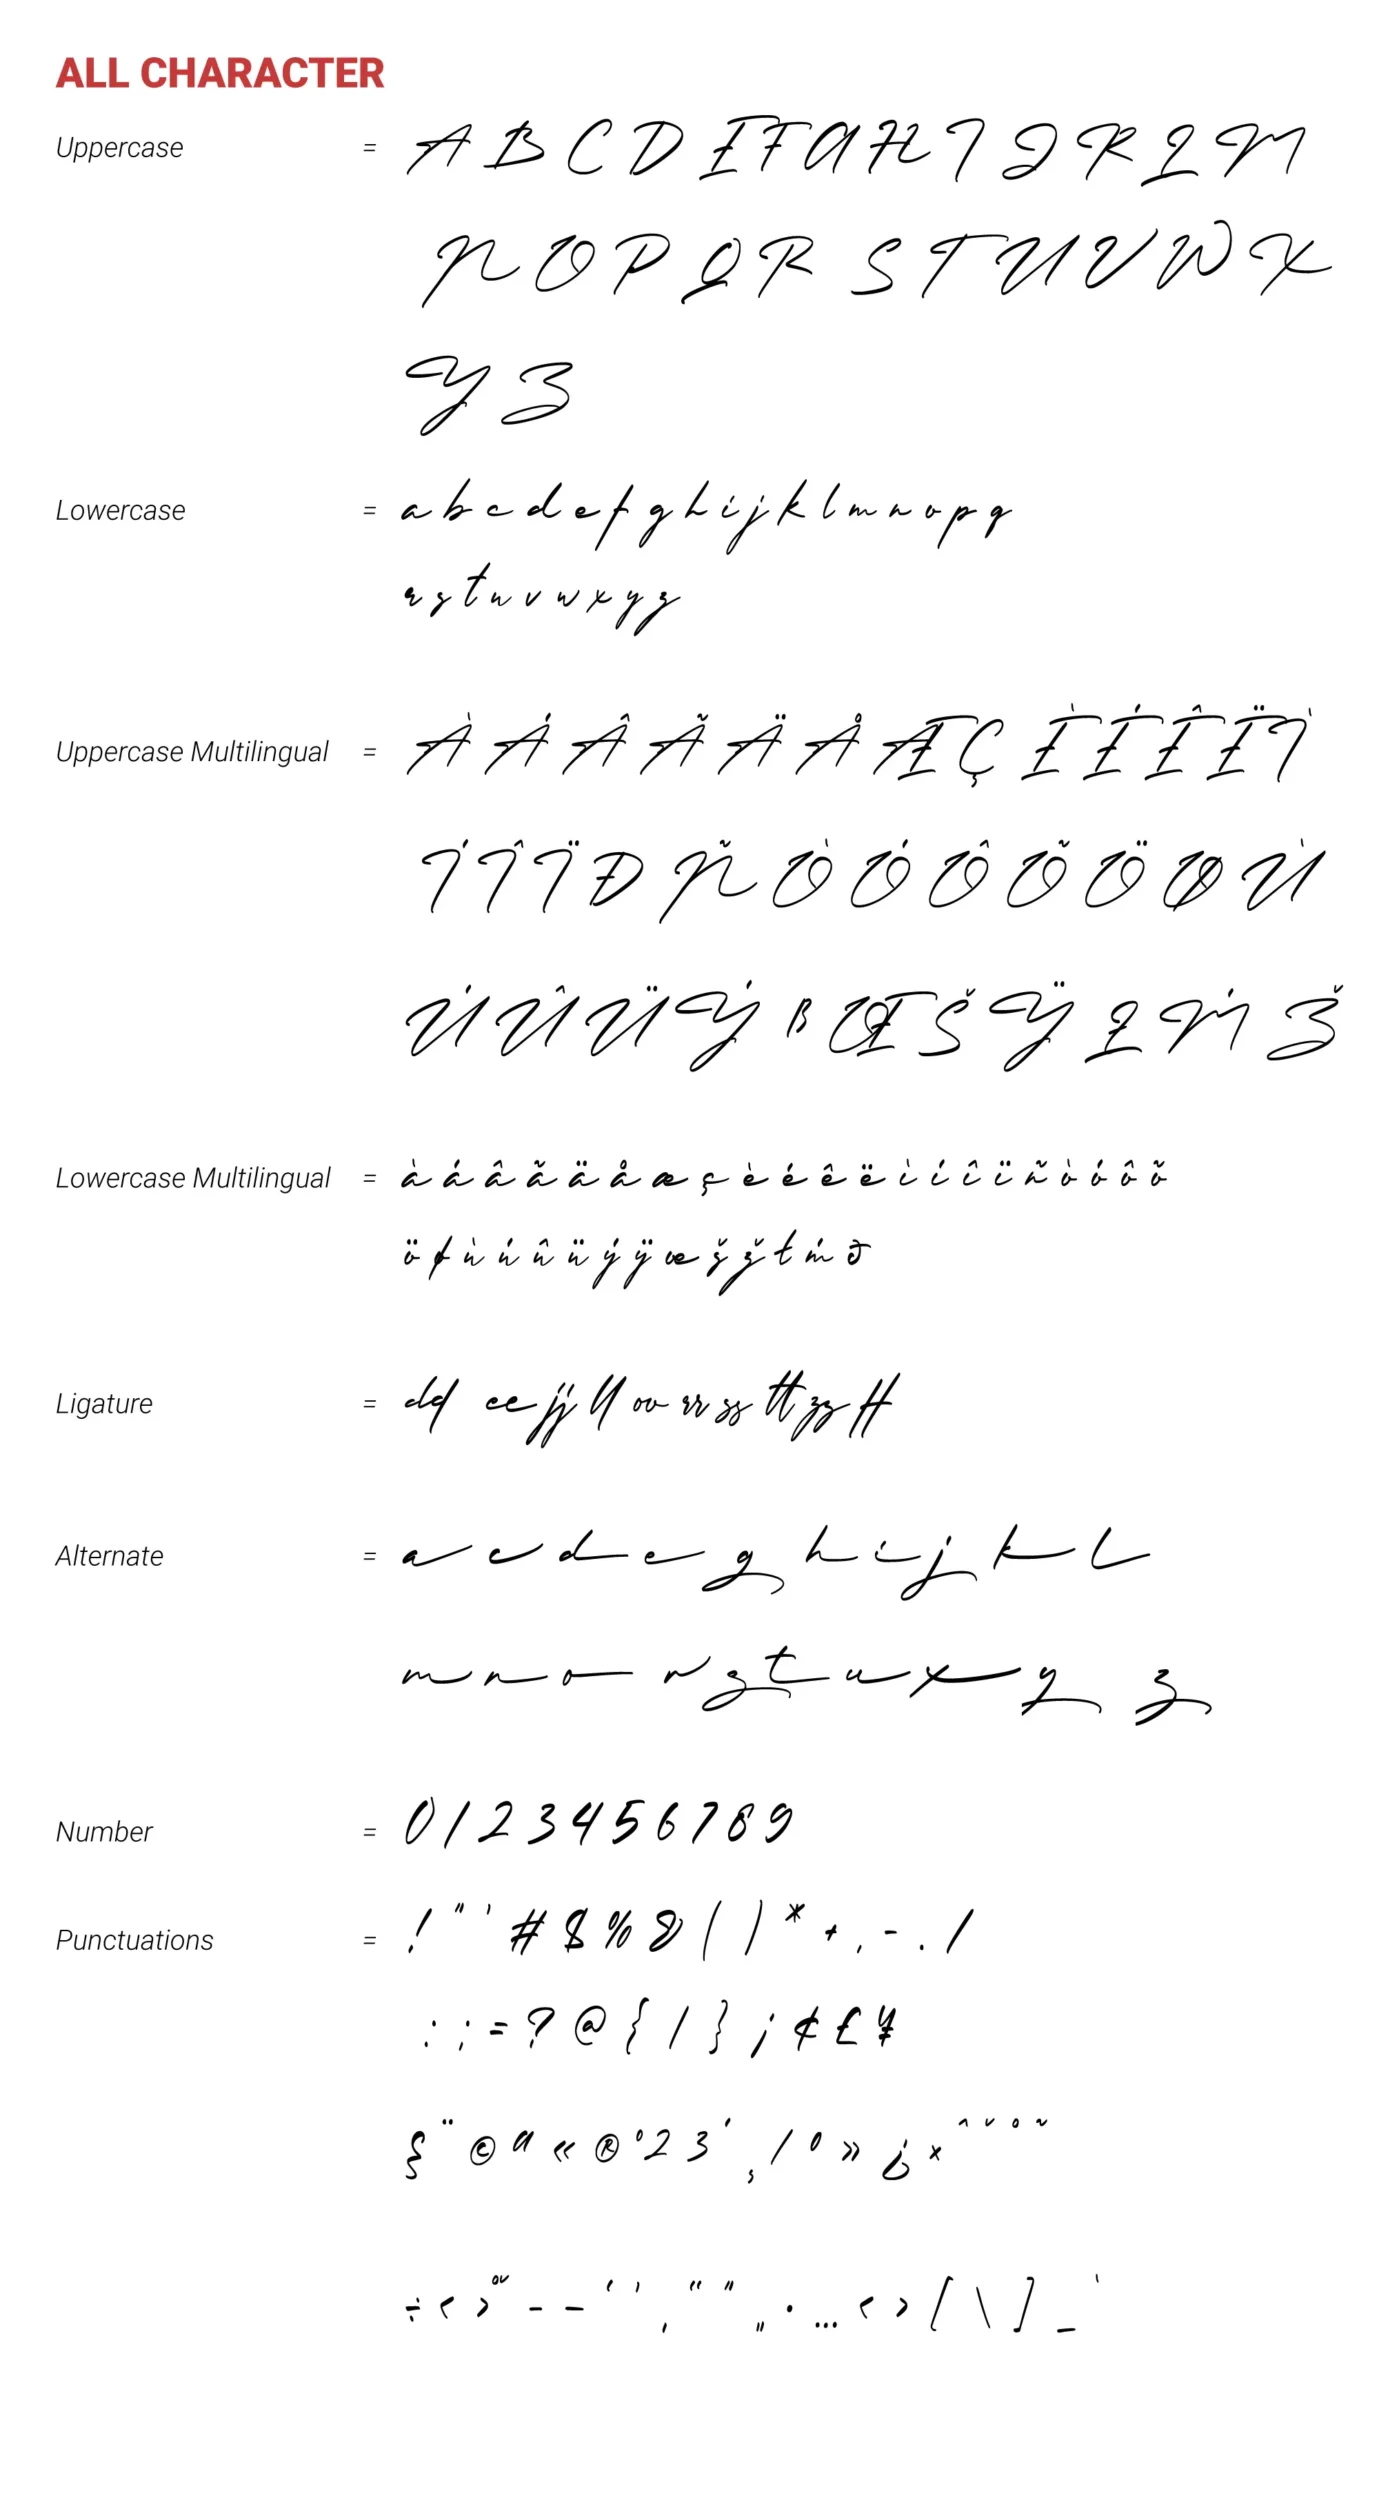 ALL CHARACTER
Uppercase = A B C D E F G H I J K L M
N O P Q R S T U V W X
Y Z
Lowercase = a b c d e f g h i j k l m n o p q
r s t u v w x y z
Uppercase Multilingual = À Á Â Ã Ä Å Æ Ç È É Ê Ë Ì
Í Î Ï Ð Ñ Ò Ó Ô Õ Ö Ø Ù
Ú Û Ü Ý ß Œ Š Ÿ Ł Ḿ Ž
Lowercase Multilingual = à á â ã ä å æ ç è é ê ë ì í î ï ñ ò ó ô õ
ö ø ù ú û ü ý ÿ œ š ž ł ḿ ð
Ligature = dd ee jj ll oo rr ss tt zz ff
Alternate = a c d e g h i j k l
m n o r s t u x y z
Number = 0 1 2 3 4 5 6 7 8 9
Punctuations = ! " ' # $ % & ( ) * + , - . /
: ; = ? @ { | } ¡ ¢ £ ¥
§ ¨ © ª « ® ° 2 3 ´ ¸ / º » ¿ × ˆ ˇ ˚ ˜
÷ < > ˚ ˇ – — ‘ ’ ‚ “ ” „ • … ‹ › [ \ ] _ `